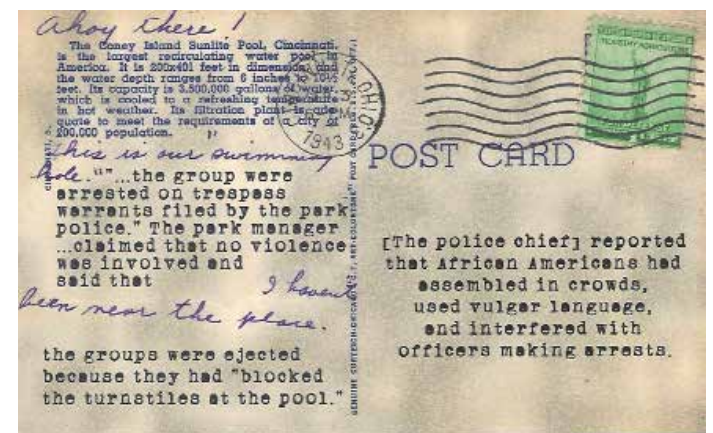 Ahoy there!
The Coney Island Sunlite Pool, Cincinnati,
is the largest recirculating water pool in
America. It is 200x401 feet in dimension, and
the water depth ranges from 6 inches to 10½
feet. Its capacity is 3,500,000 gallons of water,
which is cooled to a refreshing temperature
in hot weather. Its filtration plant is ade-
quate to meet the requirements of a city of
200,000 population.
This is our swimming
hole.
""...the group were
arrested on trespass
warrants filed by the park
police." The park manager
...claimed that no violence
was involved and
said that
I havent
been near the place.
the groups were ejected
because they had "blocked
the turnstiles at the pool."
CINCINNATI, O.
GENUINE CURTEICH-CHICAGO "C.T. ART-COLORTONE" POST CARD
OHIO
1943
POST CARD
[The police chief] reported
that African Americans had
assembled in crowds,
used vulgar language,
and interfered with
officers making arrests.
INDUSTRY AGRICULTURE